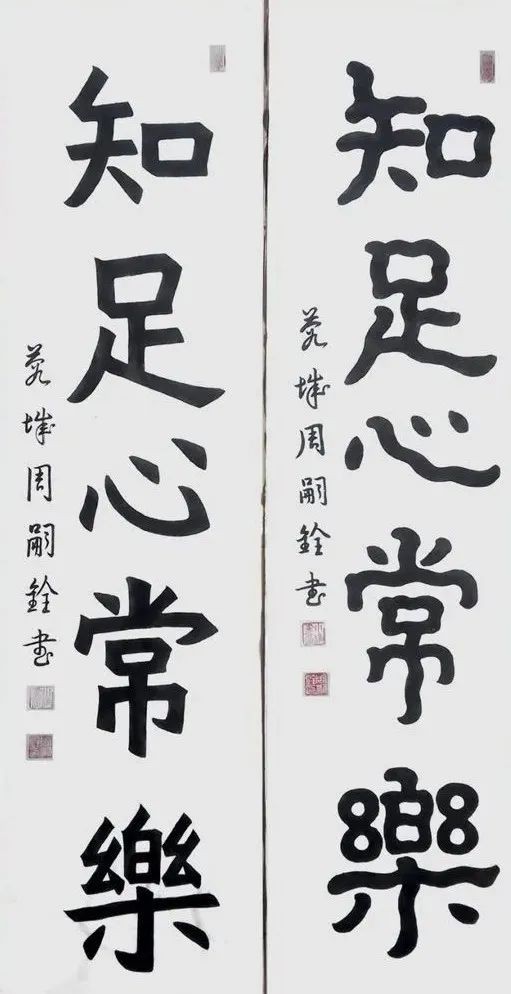 知足心常樂
城周嗣銓書
知足心常樂
城周嗣銓書